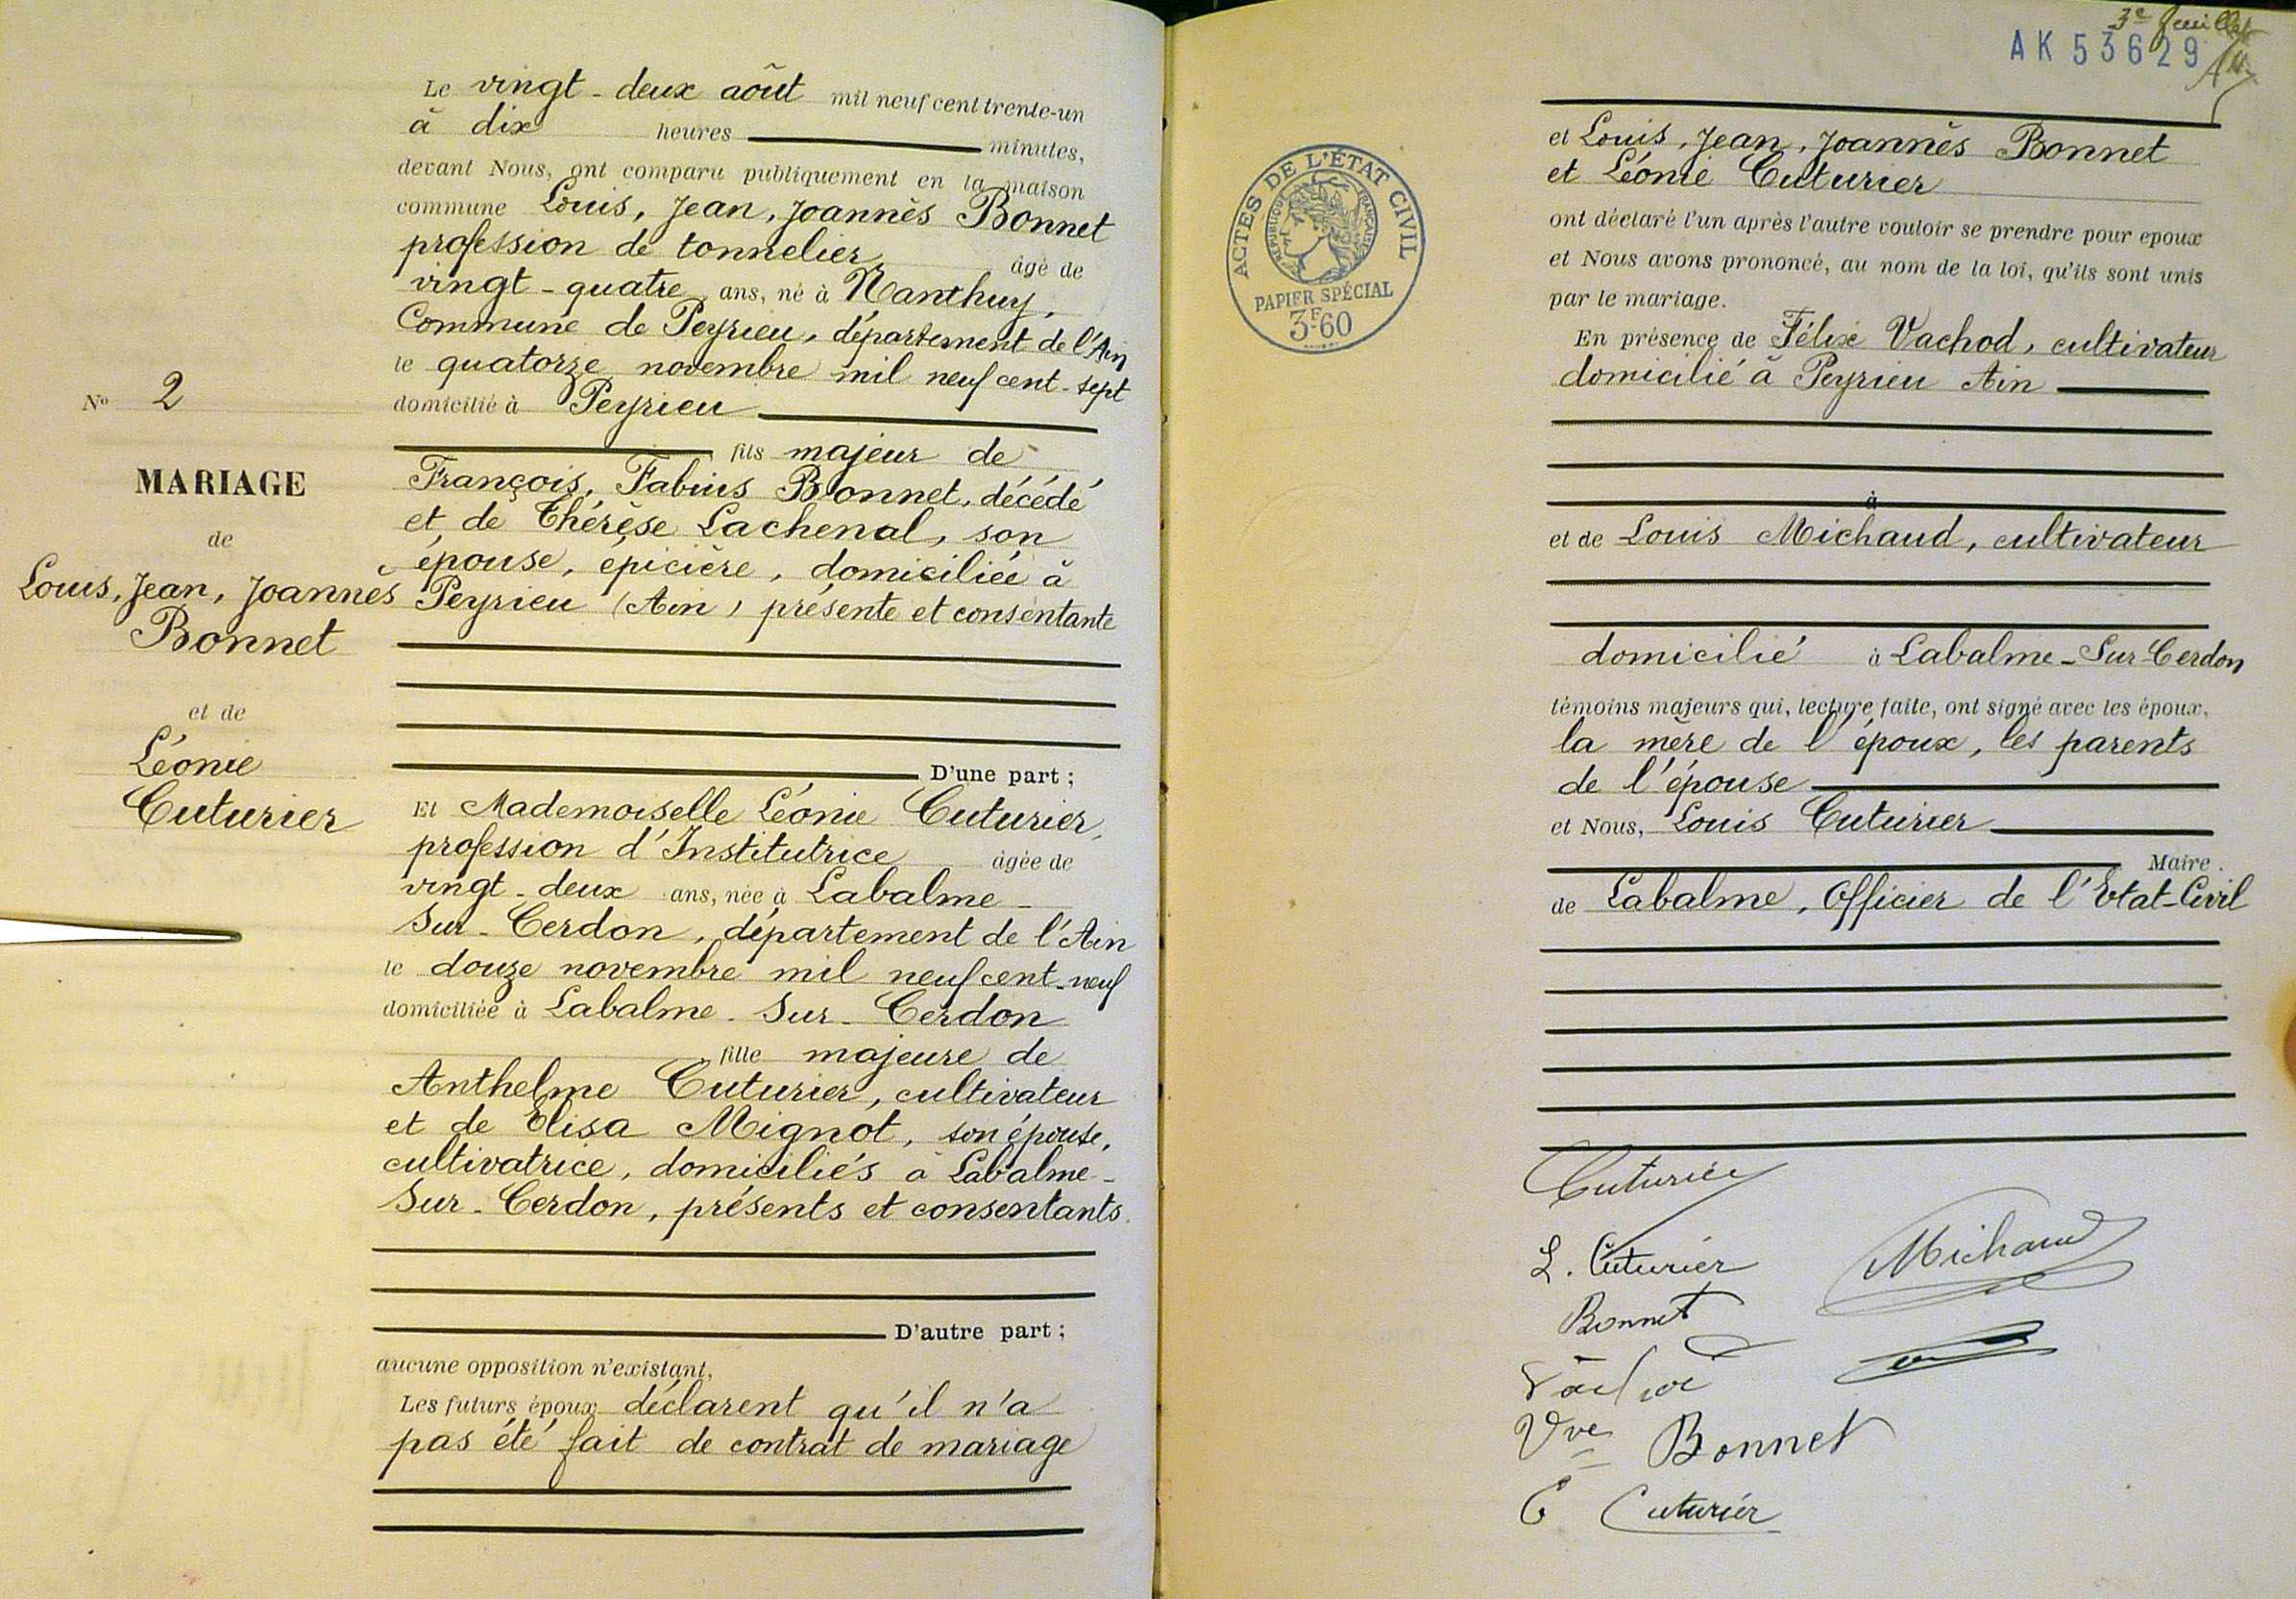 Le vingt-deux août mil neuf cent trente-un
à dix heures minutes,
devant Nous, ont comparu publiquement en la maison
commune Louis, Jean, Joannès Bonnet
profession de tonnelier âgé de
vingt-quatre ans, né à Nanthuy,
Commune de Peyrieu, département de l'Ain
le quatorze novembre mil neuf cent-sept
domicilié à Peyrieu
fils majeur de
François, Fabius Bonnet, décédé
et de Thérèse Lachenal, son
épouse, épicière, domiciliée à
Peyrieu (Ain) présente et consentante
D'une part ;
Et Mademoiselle Léonie Cuturier,
profession d'Institutrice âgée de
vingt-deux ans, née à Labalme-
Sur-Cerdon, département de l'Ain
le douze novembre mil neuf cent-neuf
domiciliée à Labalme-Sur-Cerdon
fille majeure de
Anthelme Cuturier, cultivateur
et de Elisa Mignot, son épouse,
cultivatrice, domiciliés à Labalme-
Sur-Cerdon, présents et consentants.
D'autre part ;
aucune opposition n'existant,
Les futurs époux déclarent qu'il n'a
pas été fait de contrat de mariage
No 2
MARIAGE
de
Louis, Jean, Joannès
Bonnet
et de
Léonie
Cuturier
3e feuillet
AK 53629
ACTES DE L'ÉTAT CIVIL
RÉPUBLIQUE FRANÇAISE
PAPIER SPÉCIAL
3F60
et Louis, Jean, Joannès Bonnet
et Léonie Cuturier
ont déclaré l'un après l'autre vouloir se prendre pour epoux
et Nous avons prononcé, au nom de la loi, qu'ils sont unis
par le mariage.
En présence de Félix Vachod, cultivateur
domicilié à Peyrieu Ain
à
et de Louis Michaud, cultivateur
domicilié à Labalme-Sur-Cerdon
témoins majeurs qui, lecture faite, ont signé avec les époux,
la mère de l'époux, les parents
de l'épouse
et Nous, Louis Cuturier
Maire
de Labalme, Officier de l'Etat-Civil
Cuturier
L. Cuturier
Michaud
Bonnet
Vve Bonnet
Cuturier